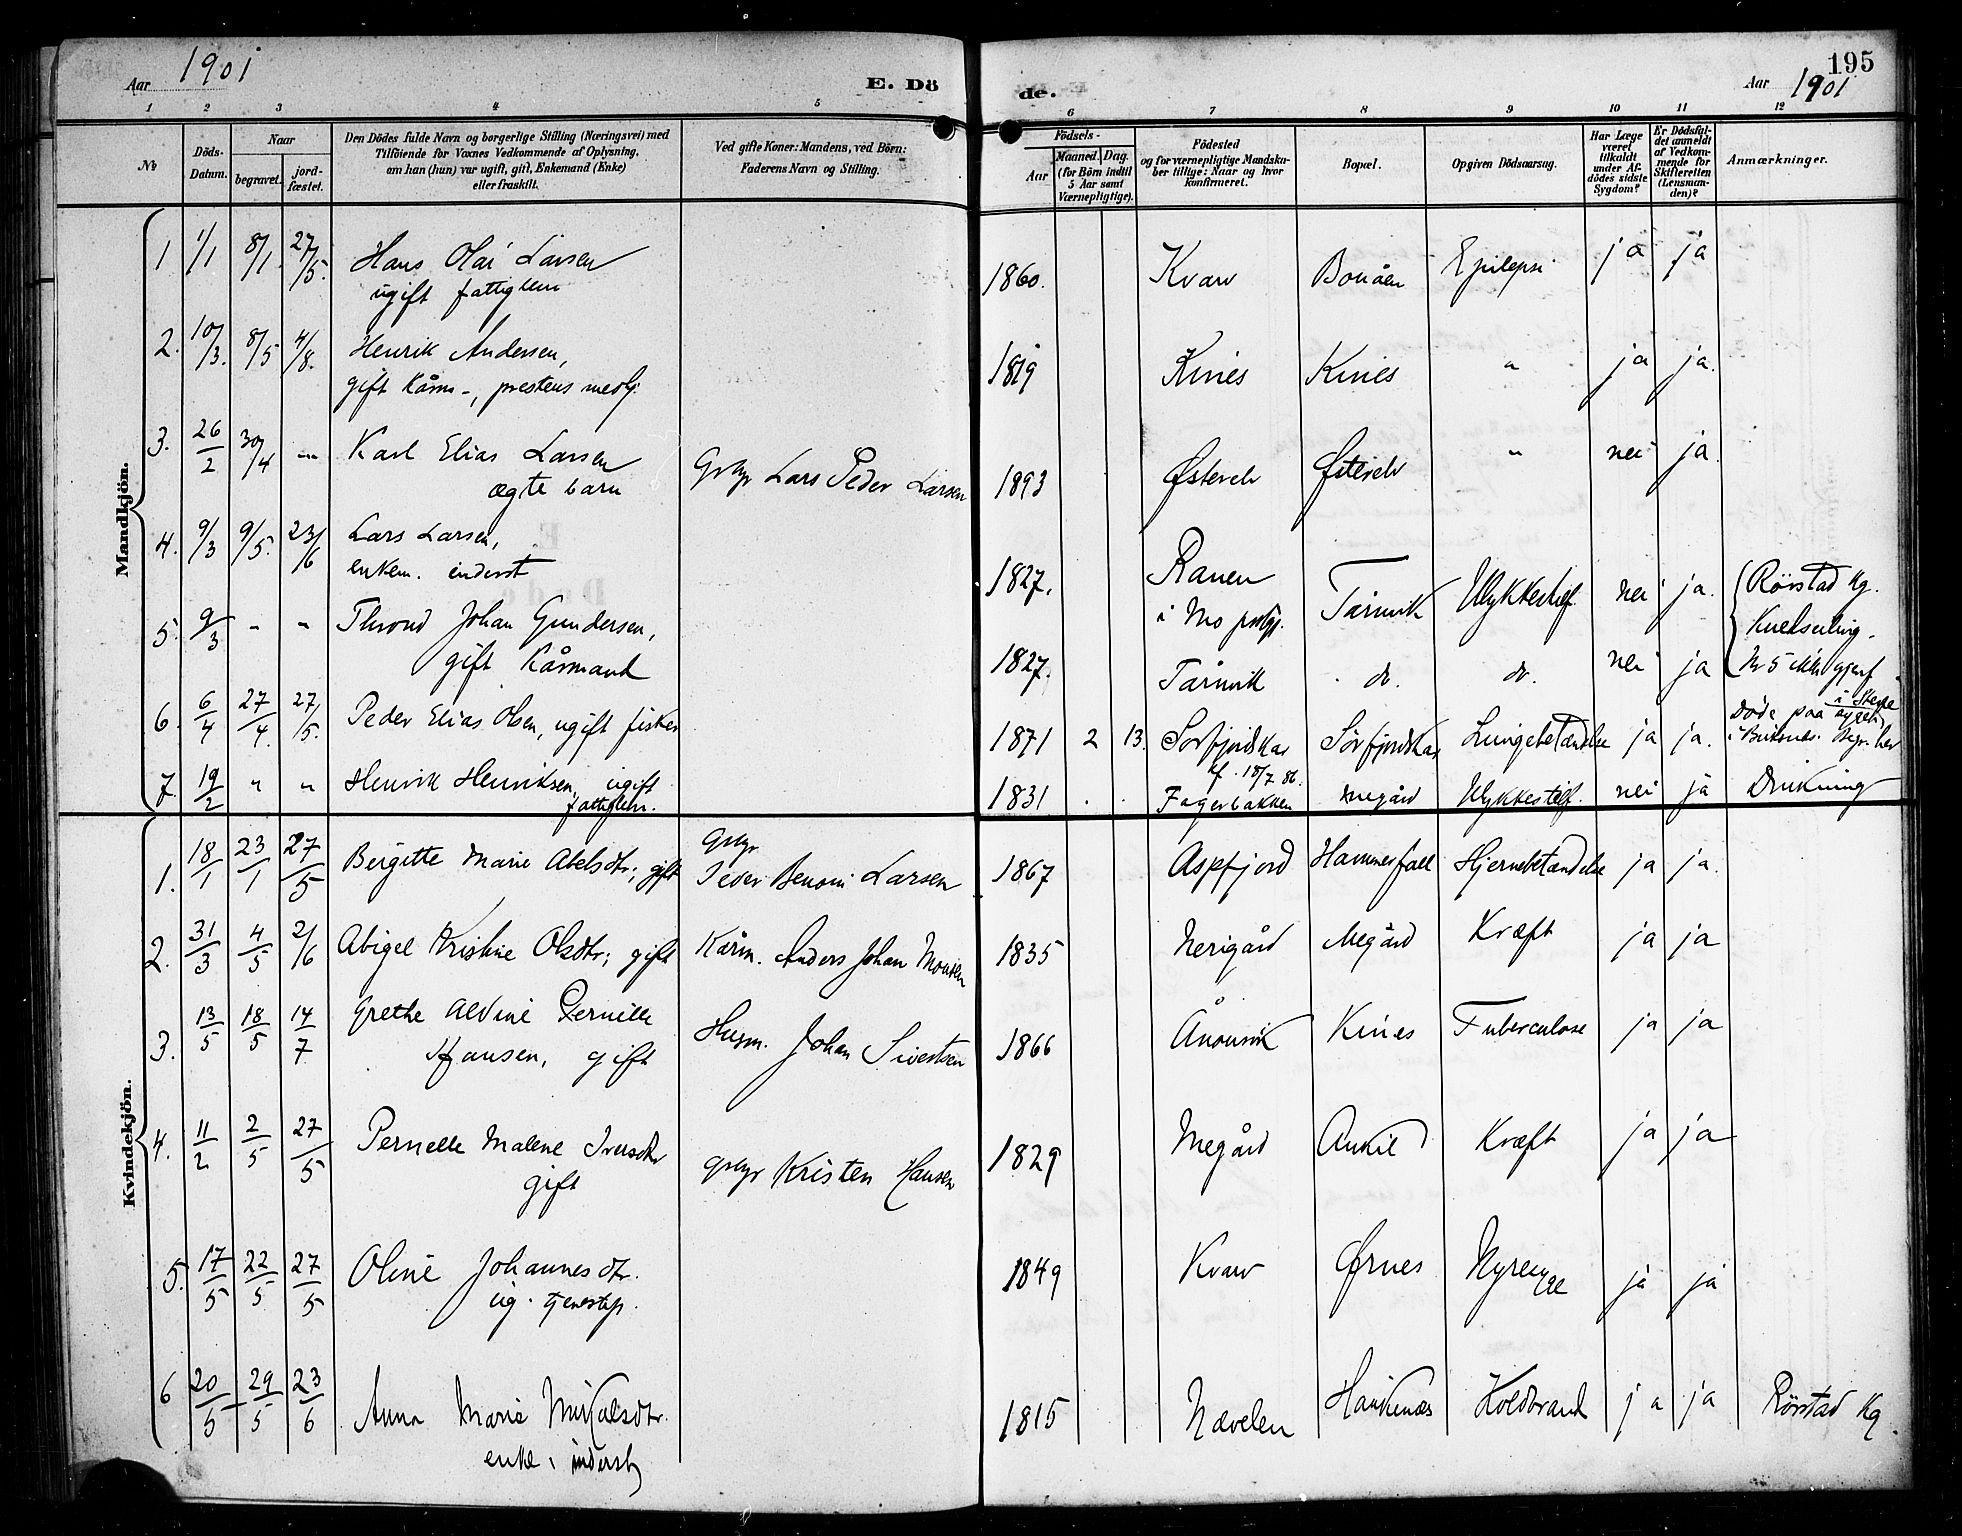 Aar 1901
E. Dö
de.
195
Aar 1901
1 2 3 4 5 6 7 8 9 10 11 12
No
Döds-Datum.
Naar
begravet.
jord-fæstet.
Den Dödes fulde Navn og borgerlige Stilling (Næringsvei) med
Tilföiende for Voxnes Vedkommende af Oplysning,
om han (hun) var ugift, gift, Enkemand (Enke)
eller fraskilt.
Ved gifte Koner: Mandens, ved Börn:
Faderens Navn og Stilling.
Födsels-
Aar
Maaned. Dag.
(for Börn indtil
5 Aar samt
Værnepligtige).
Födested
og for værnepligtige Mandska-
ber tillige: Naar og hvor
konfirmeret.
Bopæl.
Opgiven Dödsaarsag.
Har Læge
været
tilkaldt
under Af-
dödes sidste
Sygdom?
Er Dödsfal-
det anmeldt
af Vedkom-
mende for
Skifteretten
(Lensman-
den)?
Anmærkninger.
Mandkjön.
1 1/1 8/1 27/5. Hans Olai Larsen 1860. Kvarv Bonåen Epilepsi ja ja
ugift fattiglem
2. 10/3. 8/5 4/8. Henrik Andersen, 1819 Kines Kines " ja ja.
gift Kårm -, prestens medhj.
3. 26/2 30/4 " Karl Elias Larsen Grbgr Lars Peder Larsen 1893 Østerelv Østerelv " nei ja
ægte barn
4. 9/3 9/5. 23/6 Lars Larsen, 1827. Ranen Tårnvik Ulykkestilf. nei ja. Rørstad Kg.
enkem. inderst i Mo prstgj. Kuldseiling.
5. 9/3 " " Thrond Johan Gundersen, 1827. Tårnvik do. do. nei ja Nr 5 ikke gjenf
gift Kårmand
6. 6/4 27/4. 27/5. Peder Elias Olsen, ugift fisker 1871 2 13. Sørfjordskar Sørfjordskar Lungebetændelse ja ja. Døde paa sygeh
kf. 18/7 86. i Buksnes. Begr. her
7. 19/2 " " Henrik Henriksen, ugift 1831 Fagerbakken Megård Ulykkestilf. nei ja Drukning
fattiglem.
Kvindekjön.
1. 18/1 23/1 27/5 Bergitte Marie Abelsdtr; gift Grbgr 1867 Aspfjord Hammerfall Hjernebetændelse ja ja.
Peder Benoni Larsen
2. 31/3 4/5 2/6 Abigel Kristine Olsdtr; gift Kårm. Anders Johan Monsen 1835 Nerigård Megård Kræft ja ja
3. 13/5 18/5 14/7 Grethe Alvine Pernille Husm. Johan Sivertsen 1866 Ånonvik Kines Tuberculose ja ja
Hansen, gift
4. 11/2 2/5 27/5 Pernelle Malene Iversdtr Grbgr Kristen Hansen 1829 Megård Aukil Kræft ja ja
gift
5. 17/5 22/5 27/5 Oline Johannesdtr. 1849 Kvarv Ørnes Nyresyge ja ja
ug. tjenestep.
6 20/5 29/5 23/6 Anna Marie Mikalsdtr. 1815 Nævelen Haukenæs Koldbrand ja ja Rørstad Kg.
enke, inderst